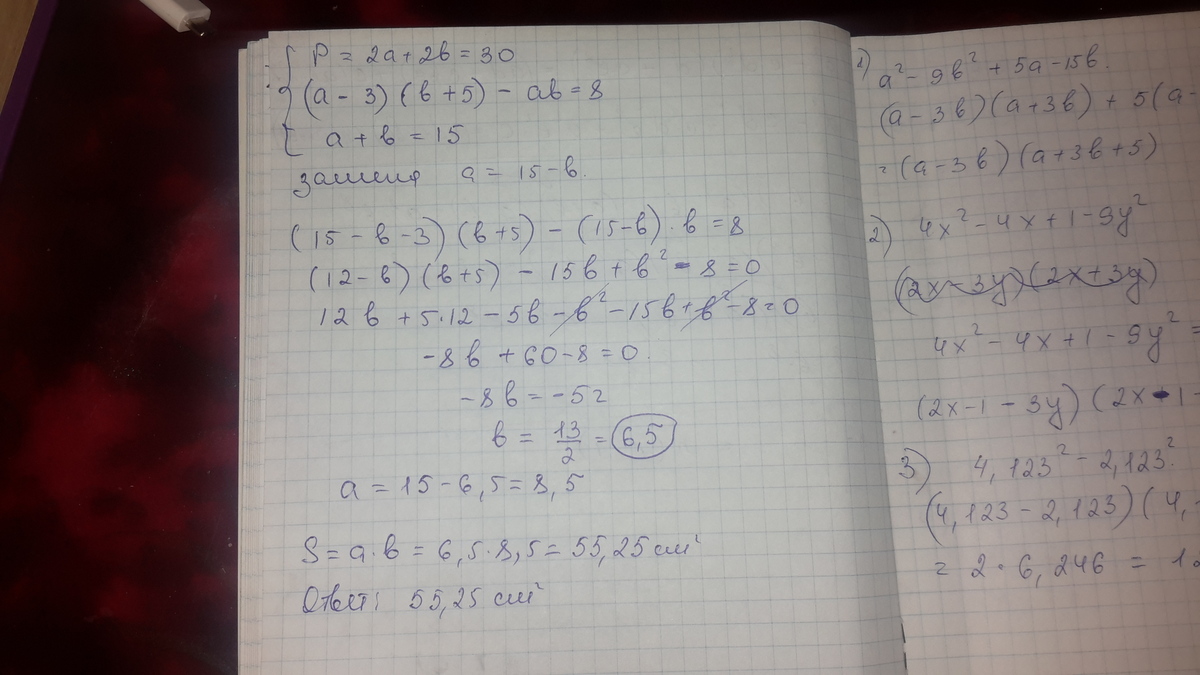 P = 2a + 2b = 30
(a - 3) (b + 5) - ab = 8
a + b = 15
замена a = 15 - b.
(15 - b - 3) (b + 5) - (15 - b) · b = 8
(12 - b) (b + 5) - 15b + b² - 8 = 0
12b + 5·12 - 5b - b² - 15b + b² - 8 = 0
-8b + 60 - 8 = 0.
-8b = -52
b = 13/2 = 6,5
a = 15 - 6,5 = 8,5
S = a·b = 6,5·8,5 = 55,25 см²
Ответ: 55,25 см²
1) a² - 9b² + 5a - 15b.
(a - 3b) (a + 3b) + 5(a -
= (a - 3b) (a + 3b + 5)
2) 4x² - 4x + 1 - 9y²
(2x - 3y) (2x + 3y)
4x² - 4x + 1 - 9y² =
(2x - 1 - 3y) (2x - 1 -
3) 4,123² - 2,123².
(4,123 - 2,123) (4,
= 2 · 6,246 = 12